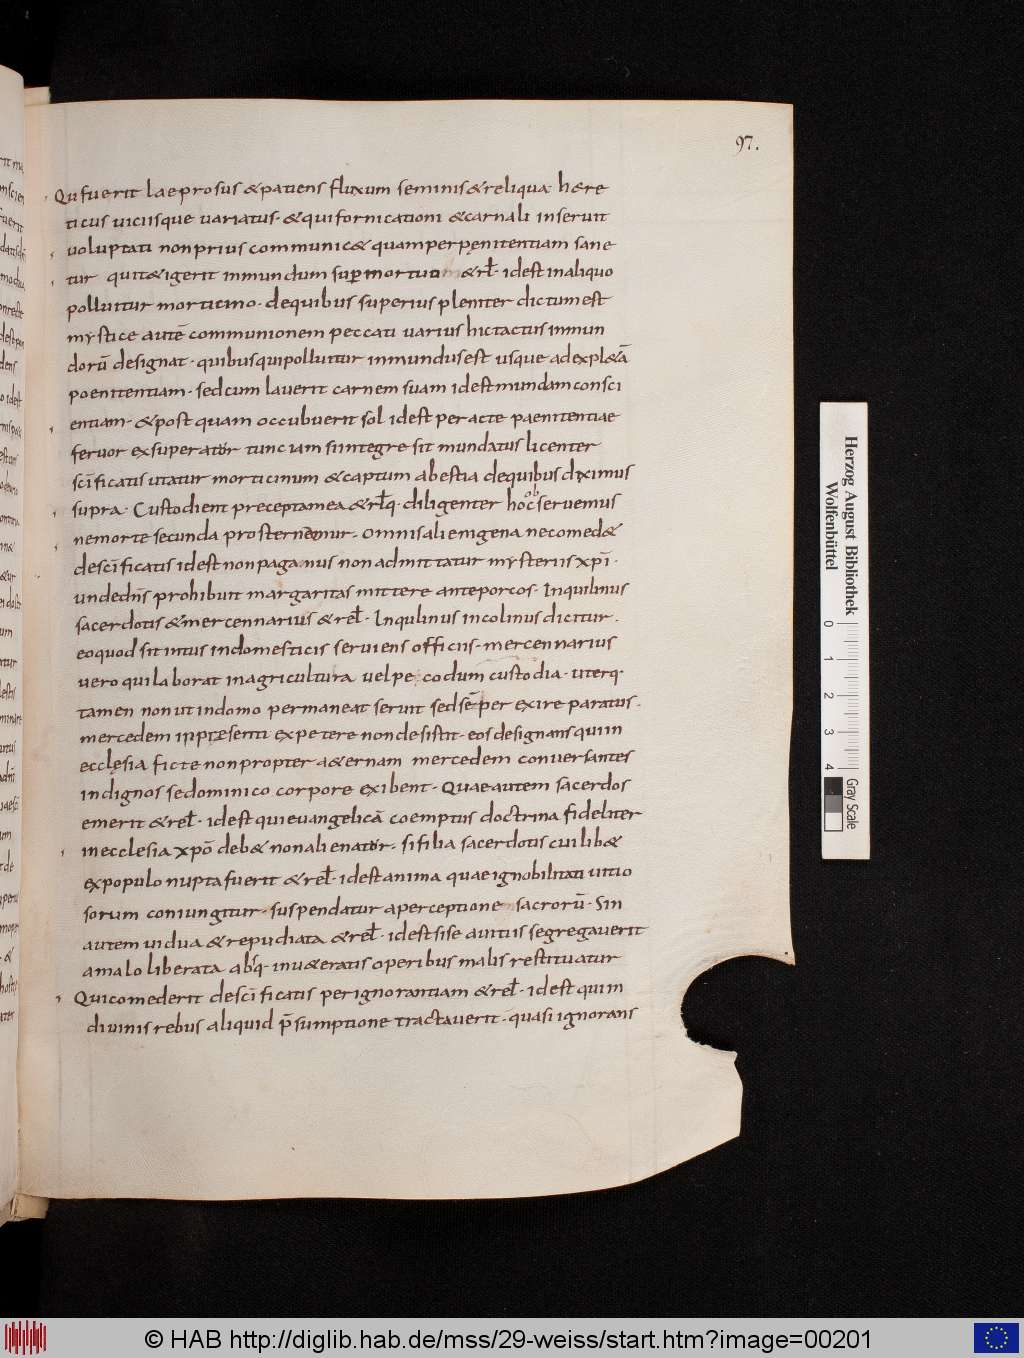 97.
Qui fuerit laeprosus & patiens fluxum seminis & reliqua· h&re
ticus uiciisque uariatus· & qui fornicationi & carnali inseruit
uoluptati non prius communic& quam per pęnitentiam sane
tur qui t&igerit inmundum sup mortuo & rł· id est in aliquo
polluitur morticino· de quibus superius pleniter dictum est
mystice autē communionem peccati uarius hic tactus inmun
dorū designat· quibus qui polluitur inmundus est usque ad expl&ā
poenitentiam· sed cum lauerit carnem suam id est mundam consci
entiam· & post quam occubuerit sol id est peracte paenitentiae
feruor exsuperator tunc iam si integre sit mundatus licenter
scīficatis utatur morticinum & captum a bestia de quibus diximus
supra· Custodient precepta mea & rłq· diligenter hoc obseruemus
ne morte secunda prosternemur· omnis alienigena ne comed&
de scīficatis id est non paganus non admittatur mysteriis xp̄i·
unde dn̄s prohibuit margaritas mittere ante porcos· Inquilinus
sacerdotis & mercennarius & reł· Inqulinus incolinus dicitur.
eo quod sit intus in domesticis seruiens officiis· mercennarius
uero qui laborat in agricultura uel pecodum custodia· uterq·
tamen non ut in domo permaneat seruit sed sēper exire paratus·
mercedem in pręsenti expetere non desistit· eos designans qui in
ecclęsia ficte non propter a&ernam mercedem conuersantes
indignos se dominico corpore exibent· Quae autem sacerdos
emerit & reł· id est qui euangelicā coemptus doctrina fideliter
in ecclesia xp̄o deb& non alienator· si filia sacerdotis cuilib&
ex populo nupta fuerit & reł· id est anima quae ignobilitati uitio
sorum coniungitur· suspendatur a perceptione sacrorū· Sin
autem uidua & repudiata & reł· id est si se a uitiis segregauerit
a malo liberata absq· inu&eratis operibus malis restituatur
Qui comederit de scīficatis per ignorantiam & reł· id est qui in
diuinis rebus aliquid p̄sumptione tractauerit· quasi ignorans
Herzog August Bibliothek
Wolfenbüttel
0 1 2 3 4
Gray Scale
© HAB http://diglib.hab.de/mss/29-weiss/start.htm?image=00201